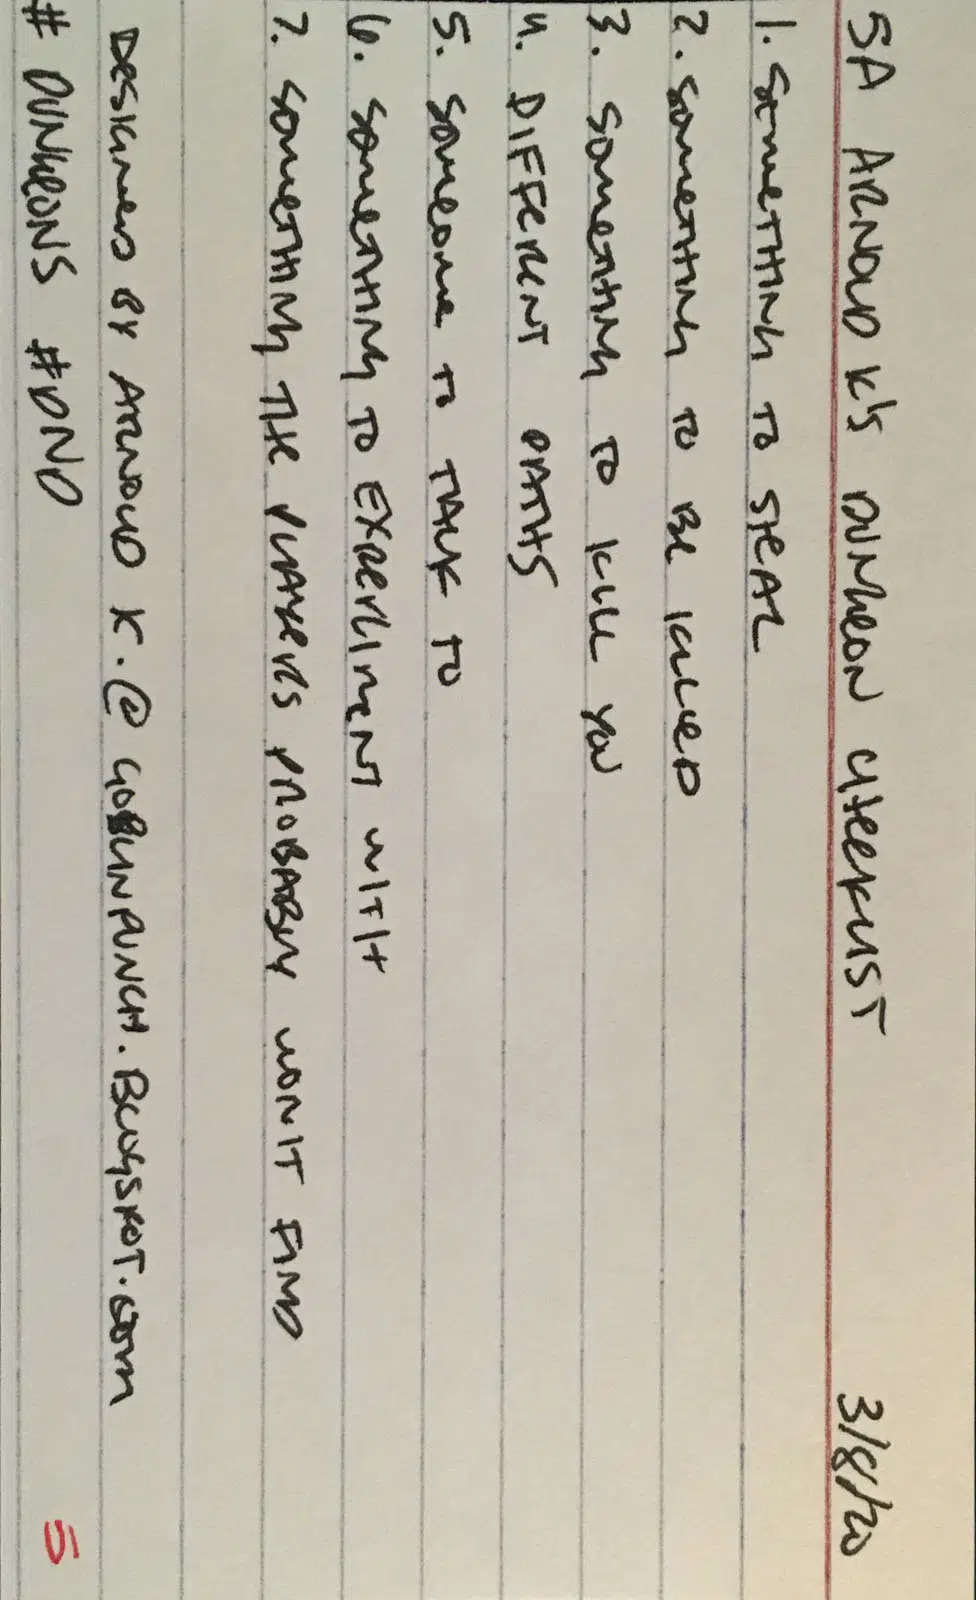 5A ARNOLD K'S DUNGEON CHECKLIST 3/8/20
1. SOMETHING TO STEAL
2. SOMETHING TO BE KILLED
3. SOMETHING TO KILL YOU
4. DIFFERENT PATHS
5. SOMEONE TO TALK TO
6. SOMETHING TO EXPERIMENT WITH
7. SOMETHING THE PLAYERS PROBABLY WON'T FIND
DESIGNED BY ARNOLD K. @ GOBLINPUNCH.BLOGSPOT.COM
# DUNGEONS #DND 5